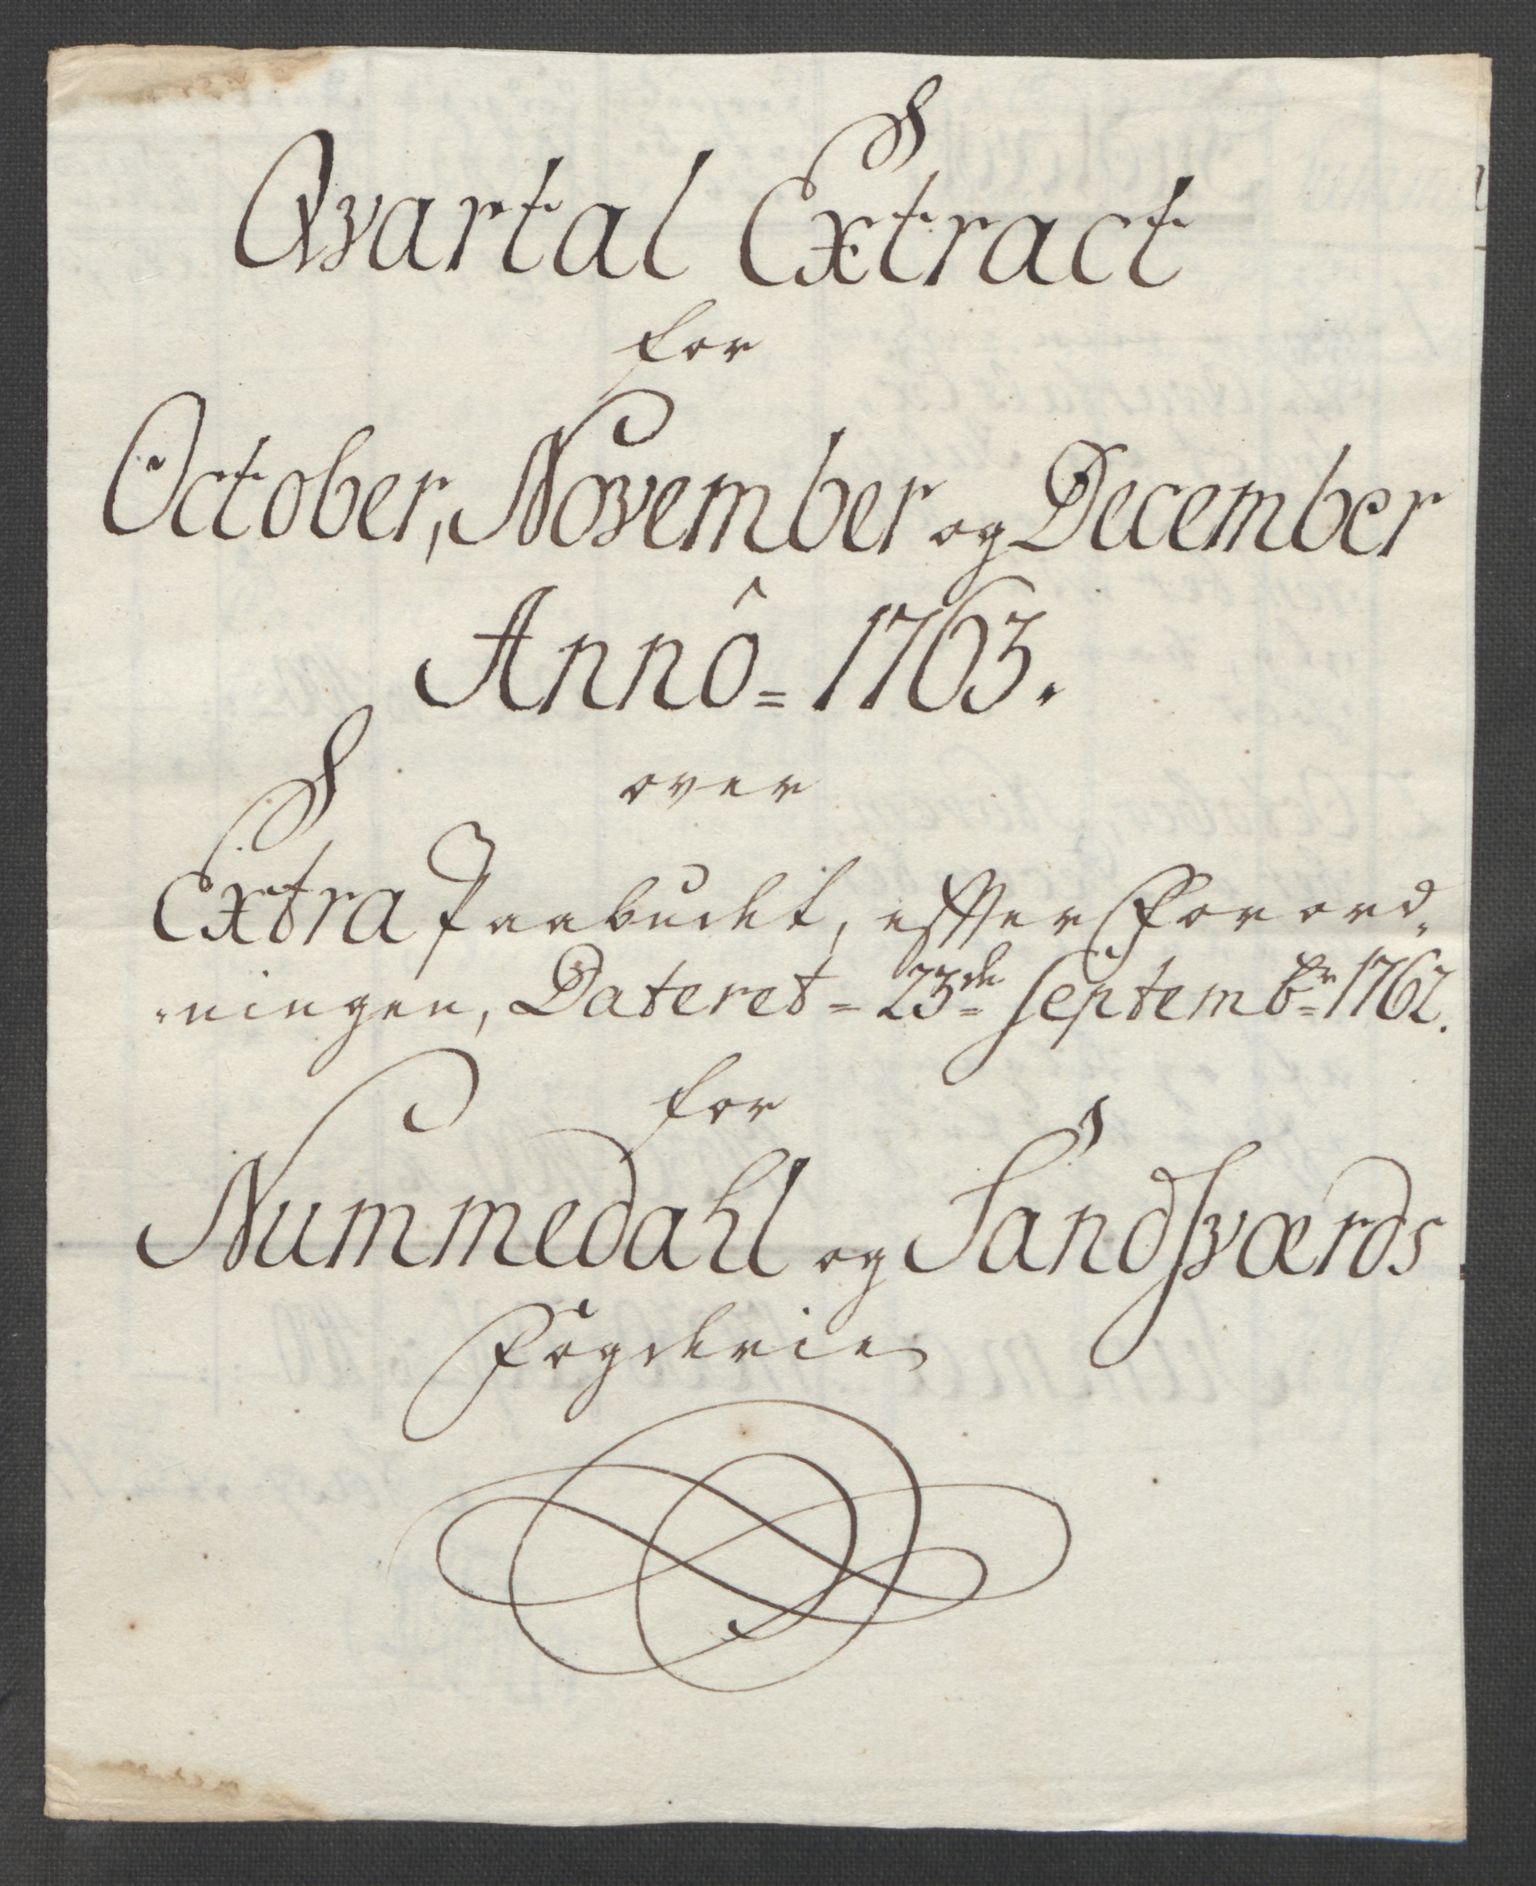 Qvartal Extract
for
October, November og December
Annô = 1763.
over
Extra Paabudet, efter Forord-
ningen, Dateret = 23de Septembr 1762.
for
Nummedahl og Sandsværds
Fogderie